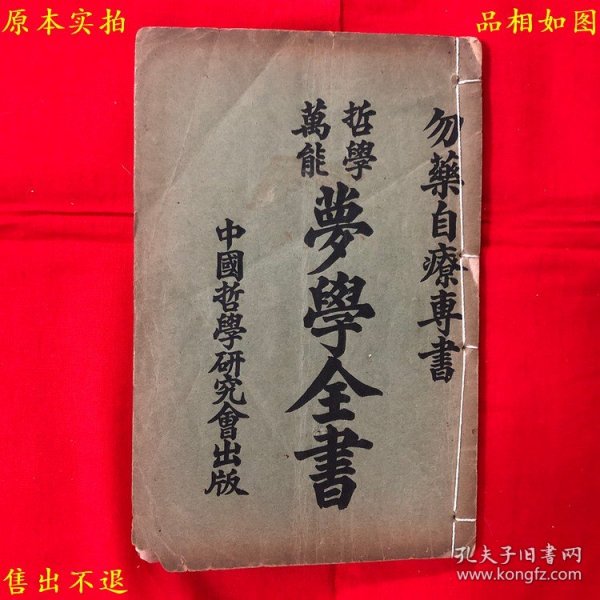 原本实拍
品相如图
勿藥自療專書
哲學
萬能
夢學全書
中國哲學研究會出版
售出不退
孔夫子旧书网
www.kongfz.com